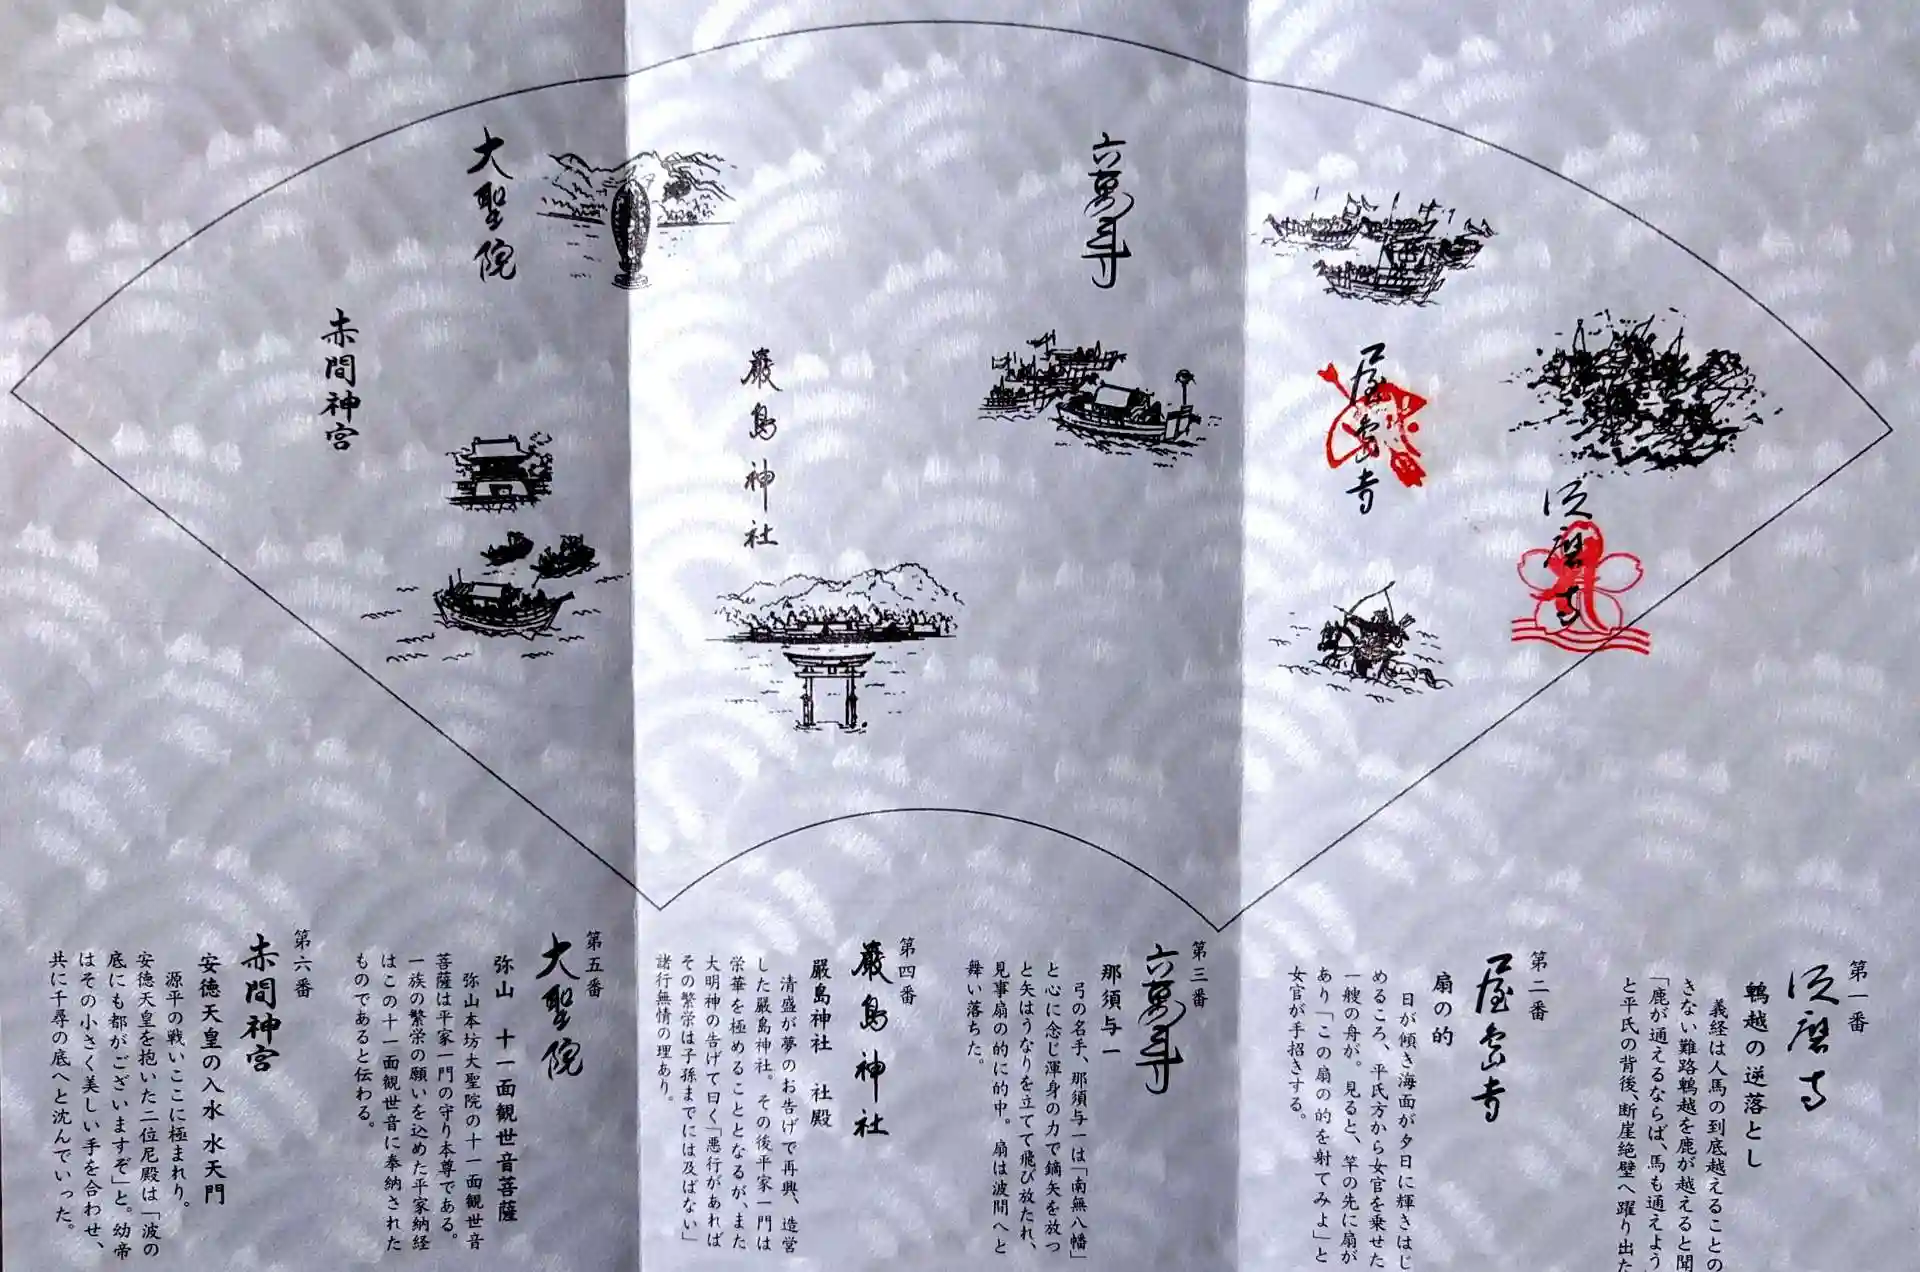 須磨寺
屋島寺
六萬寺
厳島神社
大聖院
赤間神宮
第一番
須磨寺
鵯越の逆落とし
義経は人馬の到底越えることの
きない難路鵯越を鹿が越えると聞
「鹿が通えるならば、馬も通えよう
と平氏の背後、断崖絶壁へ躍り出た
第二番
屋島寺
扇の的
日が傾き海面が夕日に輝きはじ
めるころ、平氏方から女官を乗せた
一艘の舟が。見ると、竿の先に扇が
あり「この扇の的を射てみよ」と
女官が手招きする。
第三番
六萬寺
那須与一
弓の名手、那須与一は「南無八幡」
と心に念じ渾身の力で鏑矢を放つ
と矢はうなりを立てて飛び放たれ、
見事扇の的に的中。扇は波間へと
舞い落ちた。
第四番
厳島神社
厳島神社 社殿
清盛が夢のお告げで再興、造営
した厳島神社。その後平家一門は
栄華を極めることとなるが、また
大明神の告げて曰く「悪行があれば
その繁栄は子孫までには及ばない」
諸行無情の理あり。
第五番
大聖院
弥山 十一面観世音菩薩
弥山本坊大聖院の十一面観世音
菩薩は平家一門の守り本尊である。
一族の繁栄の願いを込めた平家納経
はこの十一面観世音に奉納された
ものであると伝わる。
第六番
赤間神宮
安徳天皇の入水 水天門
源平の戦いここに極まれり。
安徳天皇を抱いた二位尼殿は「波の
底にも都がございますぞ」と。幼帝
はその小さく美しい手を合わせ、
共に千尋の底へと沈んでいった。